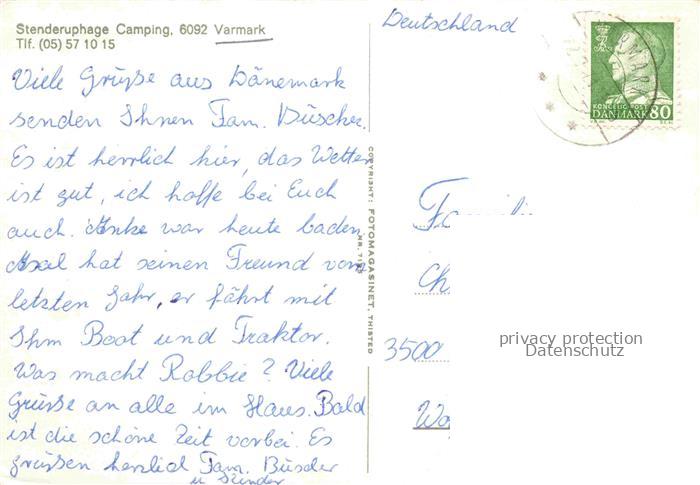 Stenderuphage Camping, 6092 Varmark
Tlf. (05) 57 10 15
Viele Grüße aus Dänemark
senden Ihnen Fam. Büscher.
Es ist herrlich hier, das Wetter
ist gut, ich hoffe bei Euch
auch. Anke war heute baden
Axel hat seinen Freund vom
letzten Jahr, er fährt mit
Ihm Boot und Traktor.
Was macht Robbie? Viele
Grüsse an alle im Haus. Bald
ist die schöne Zeit vorbei. Es
grüssen herzlich Fam. Büscher
u
COPYRIGHT: FOTOMAGASINET, THISTED
Deutschland
KONGELIG POST
DANMARK 80
Familie
Ch
3500
privacy protection
Datenschutz